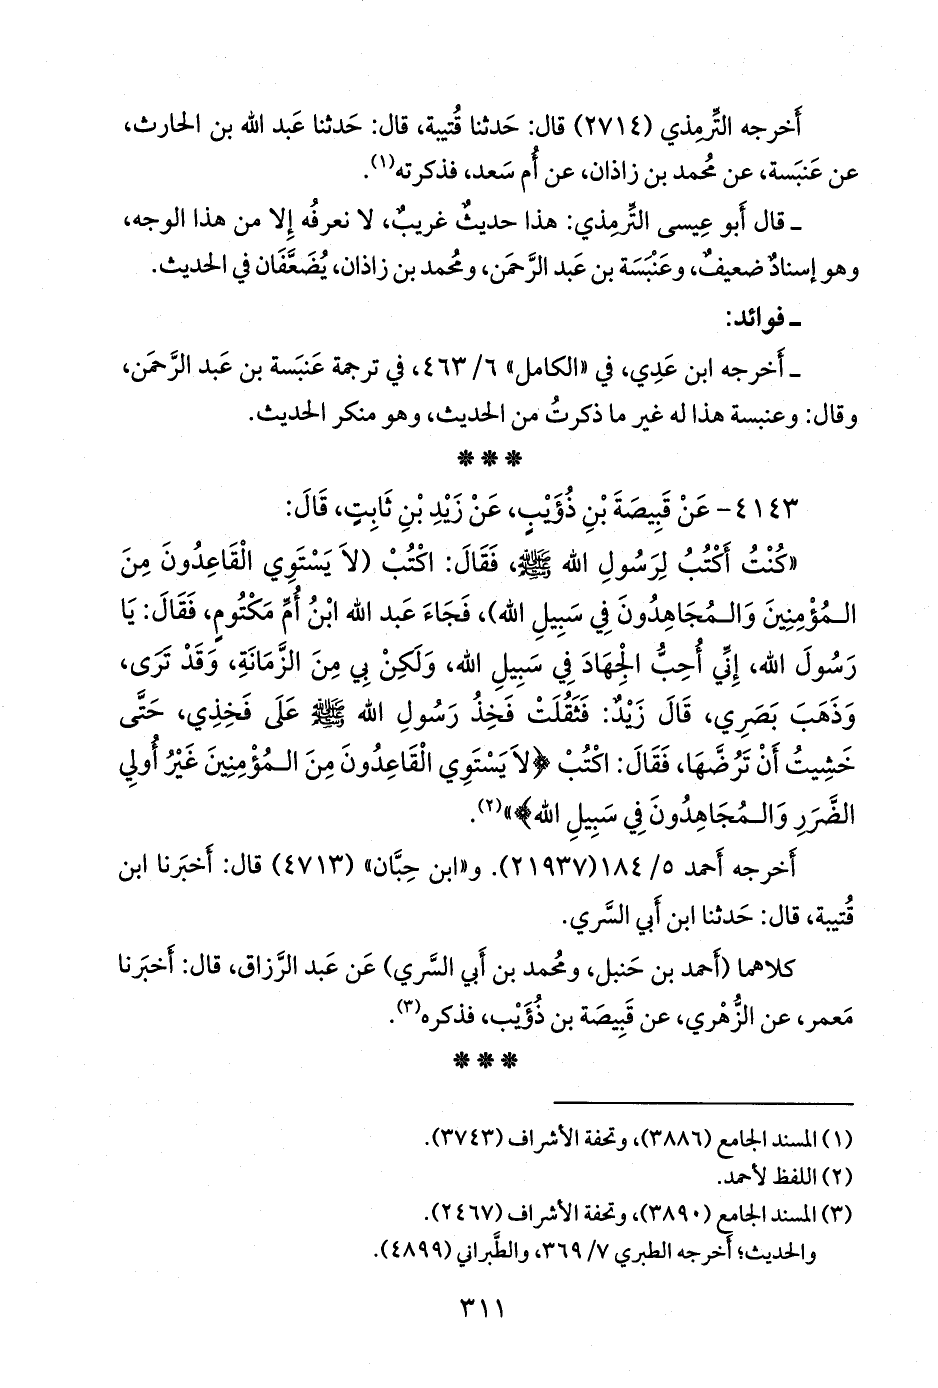 أَخرجه التِّرمِذي (٢٧١٤) قال: حَدثنا قُتيبة، قال: حَدثنا عَبد الله بن الحارث،
عن عَنبَسة، عن مُحمد بن زاذان، عن أُم سَعد، فذكرته(١).
ـ قال أَبو عِيسى التِّرمِذي: هذا حديثٌ غريبٌ، لا نعرفُه إِلا من هذا الوجه،
وهو إسنادٌ ضعيفٌ، وعَنْبَسَة بن عَبد الرَّحمَن، ومُحمد بن زاذان، يُضَعَّفَان في الحديث.
ـ فوائد:
ـ أَخرجه ابن عَدِي، في «الكامل» ٦/ ٤٦٣، في ترجمة عَنبَسة بن عَبد الرَّحمَن،
وقال: وعنبسة هذا له غير ما ذكرتُ من الحديث، وهو منكر الحديث.
***
٤١٤٣- عَنْ قَبِيصَةَ بْنِ ذُؤَيْبٍ، عَنْ زَيْدِ بْنِ ثَابِتٍ، قَالَ:
«كُنْتُ أَكْتُبُ لِرَسُولِ الله ﷺ، فَقَالَ: اكْتُبْ (لاَ يَسْتَوِي الْقَاعِدُونَ مِنَ
الـمُؤْمِنِينَ وَالـمُجَاهِدُونَ فِي سَبِيلِ الله)، فَجَاءَ عَبد الله ابْنُ أُمِّ مَكْتُومٍ، فَقَالَ: يَا
رَسُولَ الله، إِنِّي أُحِبُّ الْجِهَادَ فِي سَبِيلِ الله، وَلَكِنْ بِي مِنَ الزَّمَانَةِ، وَقَدْ تَرَى،
وَذَهَبَ بَصَرِي، قَالَ زَيْدٌ: فَثَقُلَتْ فَخِذُ رَسُولِ الله ﷺ عَلَى فَخِذِي، حَتَّى
خَشِيتُ أَنْ تَرُضَّهَا، فَقَالَ: اكْتُبْ ﴿لاَ يَسْتَوِي الْقَاعِدُونَ مِنَ الـمُؤْمِنِينَ غَيْرُ أُولِي
الضَّرَرِ وَالـمُجَاهِدُونَ فِي سَبِيلِ الله﴾»(٢).
أَخرجه أَحمد ٥/ ١٨٤(٢١٩٣٧). و«ابن حِبَّان» (٤٧١٣) قال: أَخبَرنا ابن
قُتيبة، قال: حَدثنا ابن أَبي السَّري.
كلاهما (أَحمد بن حَنبل، ومُحمد بن أَبي السَّري) عَن عَبد الرَّزاق، قال: أَخبَرنا
مَعمر، عن الزُّهْري، عن قَبِيصَة بن ذُؤَيْب، فذكره(٣).
***
(١) المسند الجامع (٣٨٨٦)، وتحفة الأشراف (٣٧٤٣).
(٢) اللفظ لأحمد.
(٣) المسند الجامع (٣٨٩٠)، وتحفة الأشراف (٢٤٦٧).
والحديث؛ أَخرجه الطبري ٧/ ٣٦٩، والطَّبراني (٤٨٩٩).
٣١١